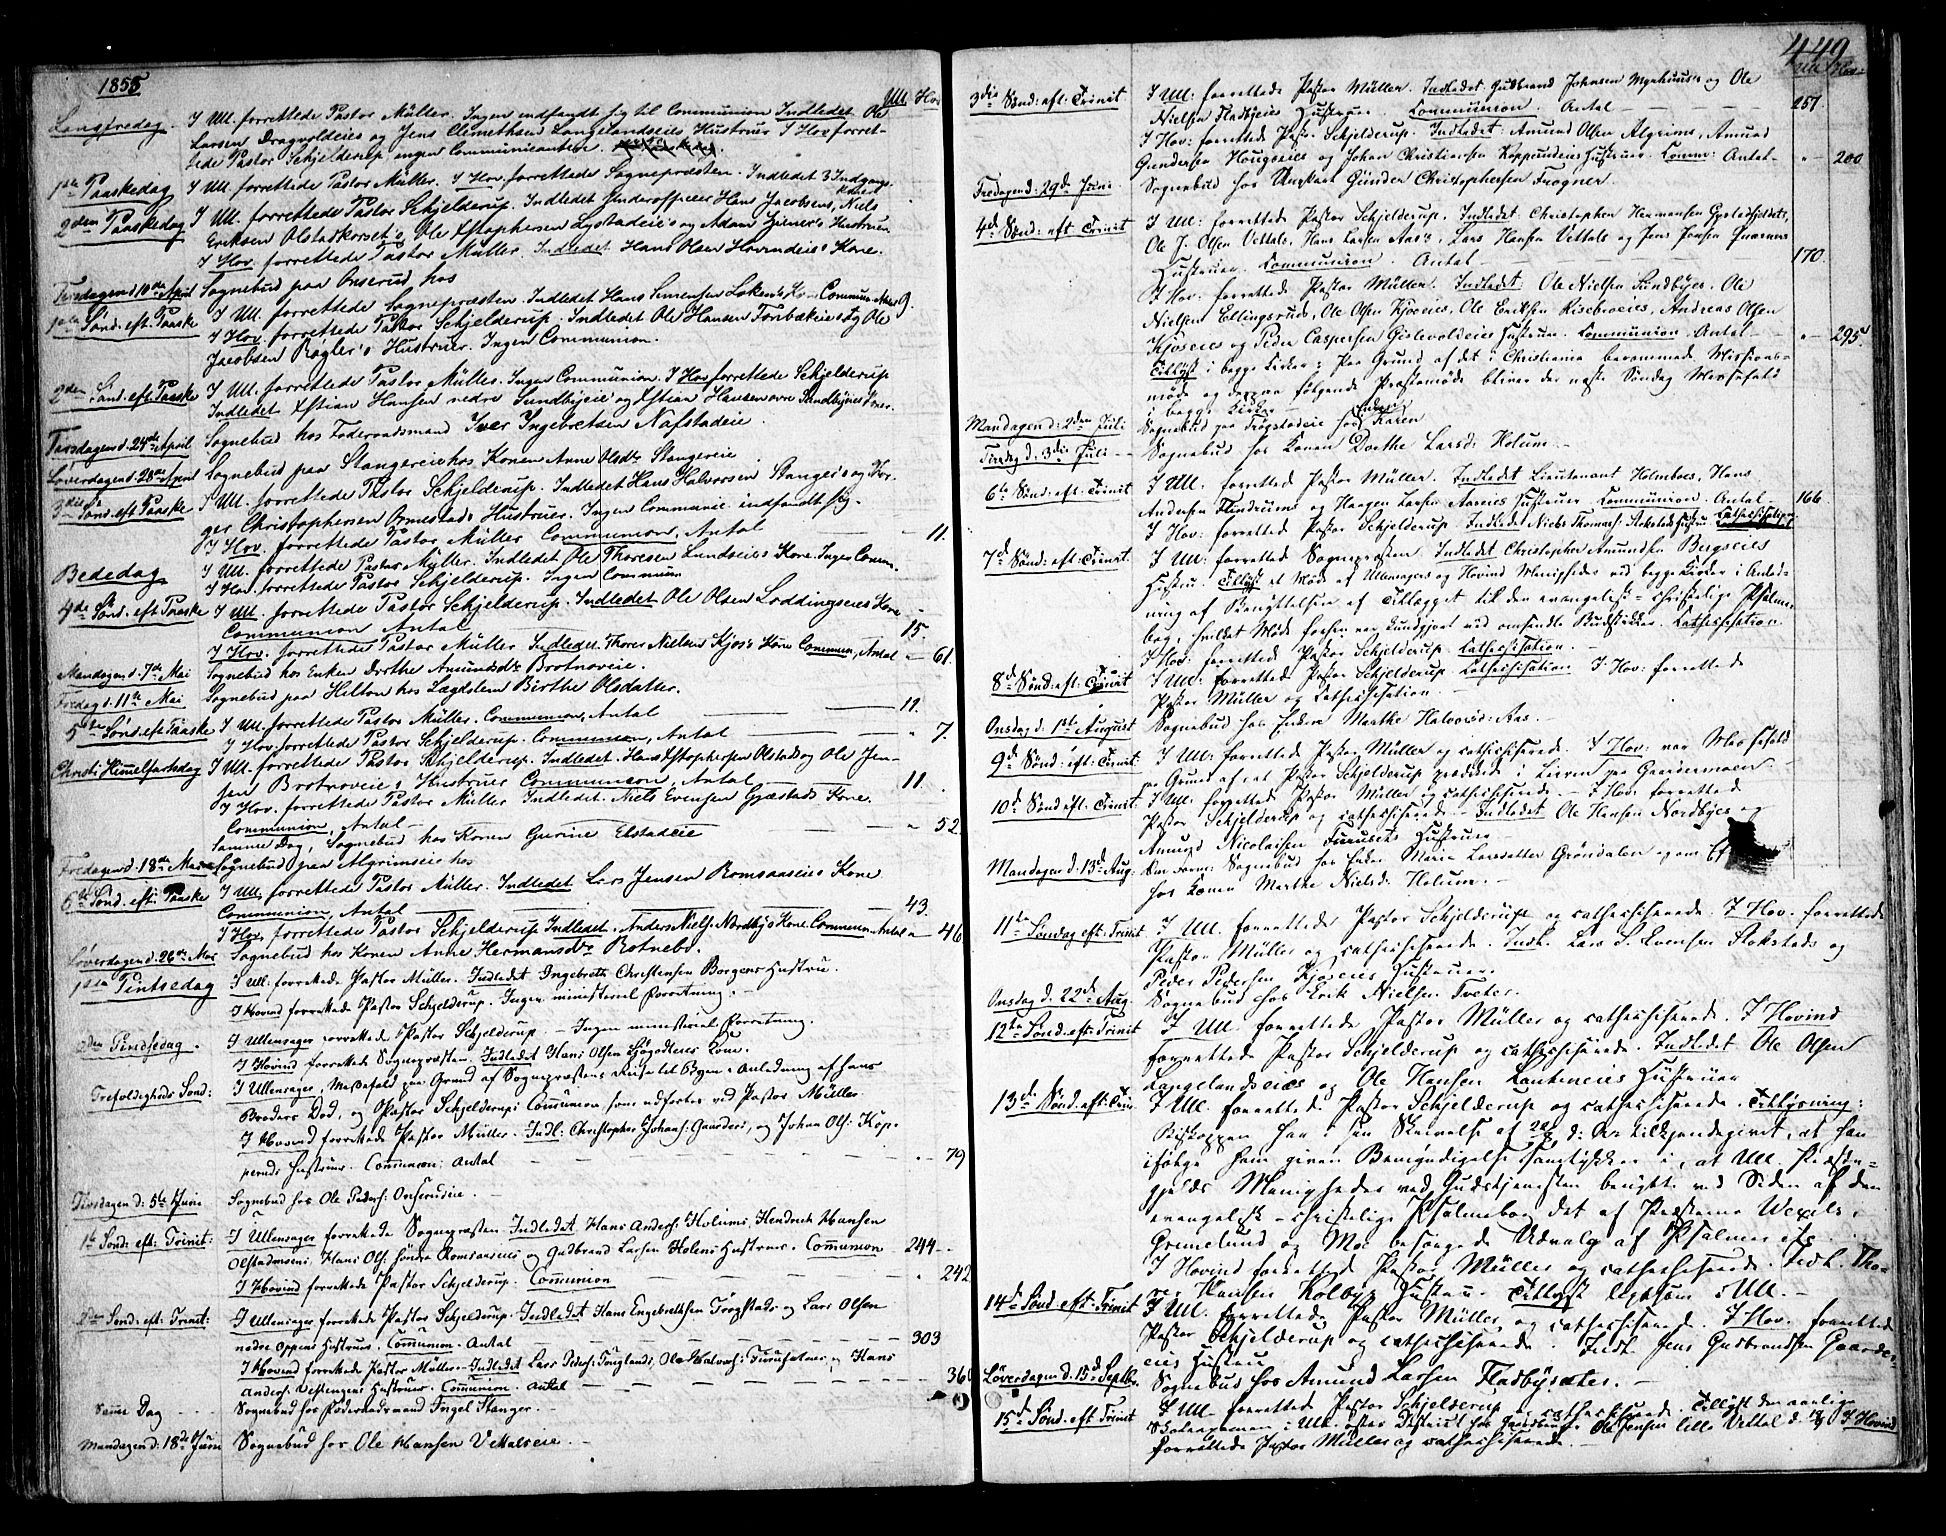 1855
Ull. Hov
Langfredag. I Ull. forrettede Pastor Müller. Ingen indfandt sig til Communion Indledet Ole
Larsen Dragvoldeies og Jens Clemethsen Langelandseies Hustruer I Hov. forret-
tede Pastor Schjelderup ingen Communicantere.
1ste Paaskedag I Ull. forrettede Pastor Müller. I Hov. forrettede Sognepræsten. Indledet 3 Indgangs-
koner
2den Paaskedag I Ull. forrettede Pastor Schjelderup. Indledet Underofficeer Hans Jacobsens, Niels
Eriksen Olstadkorset's, Ole Christophersen Lystadeie's og Adam Zieners Hustruer
I Hov. forrettede Pastor Müller. Indledet Hans Olsen Hovindeie's Kone.
Tirsdagen d. 10de April Sognebud paa Onserud hos
1ste Sønd. eft. Paaske I Ull. forrettede Sognepræsten. Indledet Hans Simensen Løken's Kone Commun. Antal 9.
I Hov. forrettede Pastor Schjelderup. Indledet Ole Hansen Torsbækeies og Ole
Jacobsen Rogler's Hustruer. Ingen Communion.
2den Sønd. eft. Paaske I Ull. forrettede Pastor Müller. Ingen Communion. I Hov. forrettede Schjelderup
Indledet Christian Hansen nedre Sundbyeie og Christian Hansen øvre Sundbyes Koner.
Tirsdagen d. 24de April Sognebud hos Føderaadsmand Iver Ingebretsen Nafstadeie.
Løverdagen d. 28de April Sognebud paa Stangereie hos Konen Anne Olsdr. Stangereie
3die Sønd. eft. Paaske I Ull. forrettede Pastor Schjelderup. Indledet Hans Halvorsen Stangeie's og Tor-
ger Christophersen Ormestads Hustruer. Ingen Communic. indfandt sig.
I Hov. forrettede Pastor Müller Communion, Antal — — 11.
Bededag I Ull. forrettede Pastor Müller. Indledet Ole Thoresen Lundseies Kone. Ingen Commun.
I Hov. forrettede Pastor Schjelderup. Ingen Commun.
4de Sønd. eft. Paaske I Ull. forrettede Pastor Schjelderup. Indledet Ole Olsen Loddingseies Kone
Communion Antal — — 15.
I Hov. forrettede Pastor Müller Indledet Thorer Nielsen Kjos's Kone Commun, Antal " 61.
Mandagen d. 7de Mai Sognebud hos Enken Dorthe Amundsdr. Brotnoveie.
Fredag d. 11te Mai Sognebud paa Hilton hos Lægdslem Birthe Olsdatter.
5te Sønd. eft. Paaske I Ull. forrettede Pastor Müller. Communion, Antal — — 11.
I Hov. forrettede Pastor Schjelderup. Communion, Antal — — " 7.
Christi Himmelfartsdag I Ull. forrettede Pastor Schjelderup. Indledet. Hans Christophersen Olstads og Ole Jen-
sen Brotnoveie's Hustruer Communion, Antal — 11.
I Hov. forrettede Pastor Müller Indledet. Niels Evensen Gjæstads Kone.
Communion, Antal — — " 52.
Samme Dag, Sognebud hos Konen Gurine Elstadeie
Fredagen d. 18de Mai Sognebud paa Algrimseie hos
6te Sønd. eft. Paaske I Ull. forrettede Pastor Müller. Indledet Lars Jensen Romsaaseies Kone
Communion, Antal — — 43.
I Hov. forrettede Pastor Schjelderup Indledet. Anders Niels. Nordby's Kone. Commun. Antal " 46
Løverdagen d. 26de Mai Sognebud hos Konen Anne Hermansdr. Botnebø.
1ste Pintsedag I Ull: forrettede Pastor Müller. Indledet Ingebreth Christensen Borgens Hustru.
I Hovind forrettede Pastor Schjelderup. Ingen ministeriel Forretning.
2den Pindsedag. I Ullensager forrettede Pastor Schjelderup. — Ingen ministeriel Forretning.
I Hovind forrettede Sognepræsten. Indledet Hans Olsen Kone.
Trefoldigheds Sønd: I Ullensager Messefald paa Grund af Sognepræstens Reise til Byen i Anledning af hans
Broders Død, og Pastor Schjelderups Communion som udførtes ved Pastor Müller
I Hovind forrettede Pastor Müller. Indl: Christopher Johans: Gaarders, og Johan Ols: Kop-
peruds Hustruer. Communion: Antal — — " 79
Tirsdagen d: 5te Juni Sognebud hos Ole Peders: Onsrudeie.
1ste Sønd: eft: Trinit: I Ullensager forrettede Sognepræsten. Indledet Hans Anders: Holums, Hendrich Hansen
Olstadmoens, Hans Ols: søndre Romsaaseies og Gudbrand Larsen Holens Hustruer. Communion 244 "
I Hovind forrettede Pastor Schjelderup. Communion — — " 242
2den Sønd: eft: Trinit: I Ullensager forrettede Pastor Schjelderup. Indledet Hans Engebrethsen Trogstads og Lars Olsen
nedre Oppens Hustruer. Communion. Antal — — 303
I Hovind forrettede Pastor Müller. Indledet Lars Peders: Fuglands, Ole Halvors: Furusæters og Hans
Anders: Vestengens Hustruer. Communion. Antal — — 36
Samme Dag Sognebud hos Føderaadsmand Engel Stanger.
Mandagen d: 18de Juni Sognebud hos Ole Hansen Vettalseie.
449
Ull. Hov.
3die Sønd: eft: Trinit I Ull: forrettede Pastor Müller. Indledet Gudbrand Johnsen Myrhuus's og Ole
Nielsen Fladbyeies Hustruer. Communion. Antal — — 257.
I Hov: forrettede Pastor Schjelderup. Indledet: Amund Olsen Algrims, Amund
Gundersen Hougseies og Johan Christiansen Kopperudeies Hustruer. Comm: Antal — " — 200
Fredagen d: 29de Juni. Sognebud hos Ungkarl Gunder Christophersen Frogner.
4de Sønd: eft Trinit I Ull: forrettede Pastor Schjelderup. Indledet: Christopher Hermansen
Ole J. Olsen Vettals, Hans Larsen Aas's, Lars Hansen Vettals og Jens Jensen
Hustruer. Communion. Antal — — 170.
I Hov: forrettede Pastor Müller. Indledet: Ole Nielsen Sundbyes, Ole
Nielsen Ellingsruds, Ole Olsen Kjoseies, Ole Eriksen Risebroeies, Andreas Olsen
Kjoseies og Peder Caspersen Gislevoldeies Hustruer. Communion. Antal — " — 295.
Tillyst i begge Kirker: Paa Grund af det i Christiania berammede Missions-
møde og derpaa følgende Præstemøde bliver der næste Søndag Messefald
i begge Kirker
Mandagen d: 2den Juli Sognebud paa Trøgstadeie hos Enken Karen
Tirsdag d: 3die Juli Sognebud hos Konen Dorthe Larsd: Holum.
6te Sønd: eft: Trinit I Ull: forrettede Pastor Müller. Indledet Lieutenant Holmboes, Hans
Andersen Flindrums og Haagen Larsen Aaseies Hustruer. Communion. Antal — 166
I Hov: forrettede Pastor Schjelderup. Indledet Niels Thomas: Hustru Cathechisation
7de Sønd: eft: Trinit. I Ull: forrettede Sognepræsten Indledet Christopher Amundsen Bergseies
Hustru. Tillyst et Møde af Ullensagers og Hovind Menigheder ved begge Kirker i Anled-
ning af Benyttelsen af Tillægget til den evangelisk-christelige Psalme-
bog, hvilket Møde forhen var kundgjort ved omsendte Budstikker. Cathechisation
I Hov: forrettede Pastor Schjelderup. Cathechisation.
8de Sønd: eft: Trinit I Ull: forrettede Pastor Schjelderup. Cathechisation I Hov: forrettede
Pastor Müller og Cathechisation.
Onsdag d. 1ste August Sognebud hos Enken Marthe Halvorsd: Aas.
9de Sønd: eft: Trinit: I Ull: forrettede Pastor Müller og cathechiserede. I Hov: var Messefald
paa Grund af, at Pastor Schjelderup prædikede i Leiren paa Gardermoen.
10de Sønd eft: Trinit: I Ull: forrettede Pastor Müller og cathechiserede. — I Hov: forrettede
Pastor Schjelderup og cathechiserede. — Indledet Ole Hansen Nordbyes og
Amund Nicolaisen Furusæts Hustruer.
Mandagen d: 13de Aug: Om Form: Sognebud hos Enken Maria Larsdatter Grøndalen og om
hos Konen Marthe Nielsd: Holum.
11te Søndag eft: Trinit I Ull. forrettede Pastor Schjelderup og cathechiserede. I Hov. forrettede
Pastor Müller og cathechiserede. Indl. Lars S. Evensen Flokstads og
Peder Pedersen Kjoseies Hustruer.
Onsdag d. 22de Aug. Sognebud hos Erik Nielsen Tveter.
12te Sønd: eft: Trinit I Ull. forrettede Pastor Müller og cathechiserede. I Hovind
forrettede Pastor Schjelderup og cathechiserede. Indledet Ole Olsen
Langelandseies og Ole Hansen Hustruer
13de Sønd. eft. Trin. I Ull. forrettede Pastor Schjelderup og cathechiserede. Tillysning:
Biskoppen har i sin Skrivelse af d: M: tilkjendegivet, at han
ifølge ham given Bemyndigelse samtykker i, at Ull. Præste-
gjelds Menigheder ved Gudstjenesten benytte ved Siden af den
evangelisk-christelige Psalmebog det af Præsterne Wexels,
Grimelund og Moe besørgede Udvalg af Psalmer etc.
I Hovind forrettede Pastor Müller og cathechiserede. Indl. Tho-
Hansen Kolbys Hustru. Tillyst ligesom i Ull.
14de Sønd. eft. Trinit I Ull. forrettede Pastor Müller og cathechiserede. I Hov. forrettede
Pastor Schjelderup og cathechiserede. Indl. Jens Gudbrandsen Gaarder-
eies Hustru
Løverdagen d. 15de Septbr. Sognebud hos Amund Larsen Fladbysæter.
15de Sønd. eft Trinit I Ull. forrettede Pastor Schjelderup og cathechiserede. Tillyst den aarlige
i Ull. østre District hos Ole Jensen lille Vettal d. I Hovind
forrettede Pastor Müller og cathechiserede.